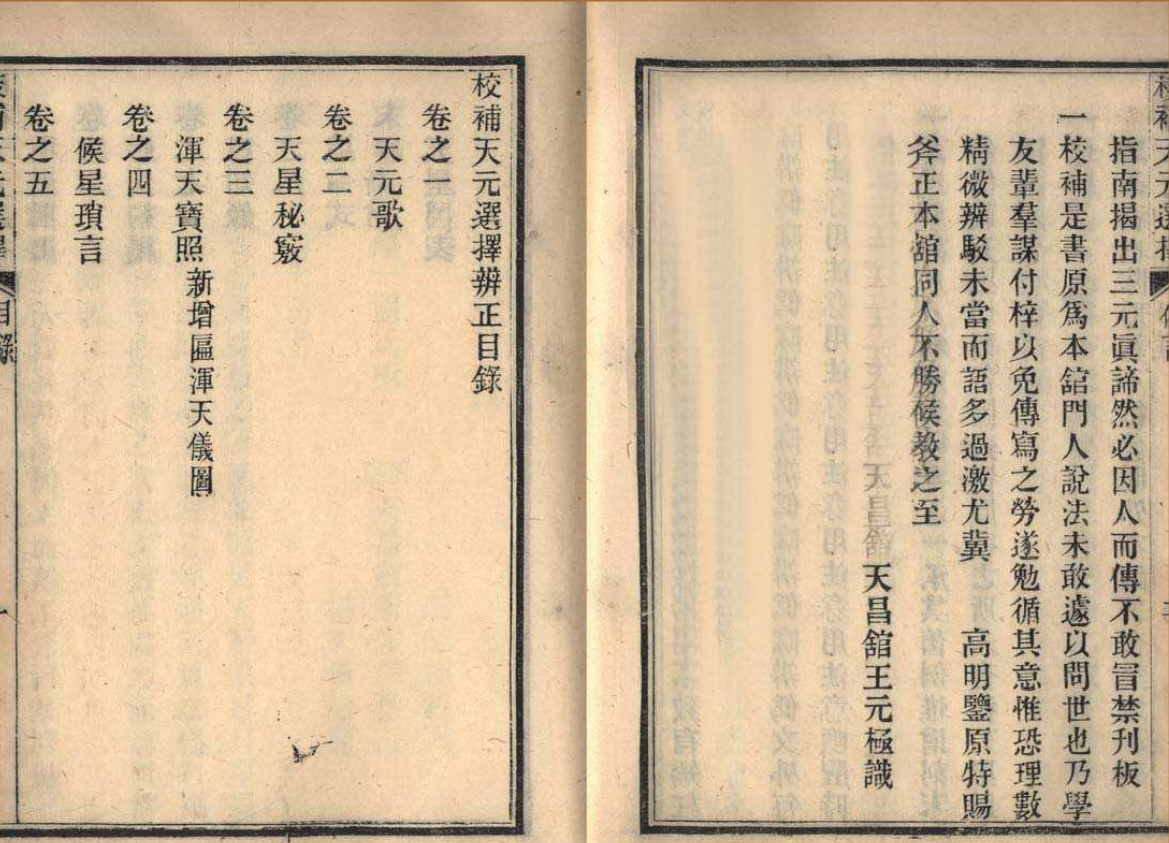 指南揭出三元眞諦然必因人而傳不敢冒禁刊板
一校補是書原爲本舘門人說法未敢遽以問世也乃學
友輩羣謀付梓以免傳寫之勞遂勉循其意惟恐理數
精微辨駁未當而語多過激尤冀　高明鑒原特賜
斧正本舘同人不勝候教之至
天昌舘王元極識
校補天元選擇辨正目錄
卷之一
天元歌
卷之二
天星秘竅
卷之三
渾天寶照新增區渾天儀圖
卷之四
候星瑣言
卷之五